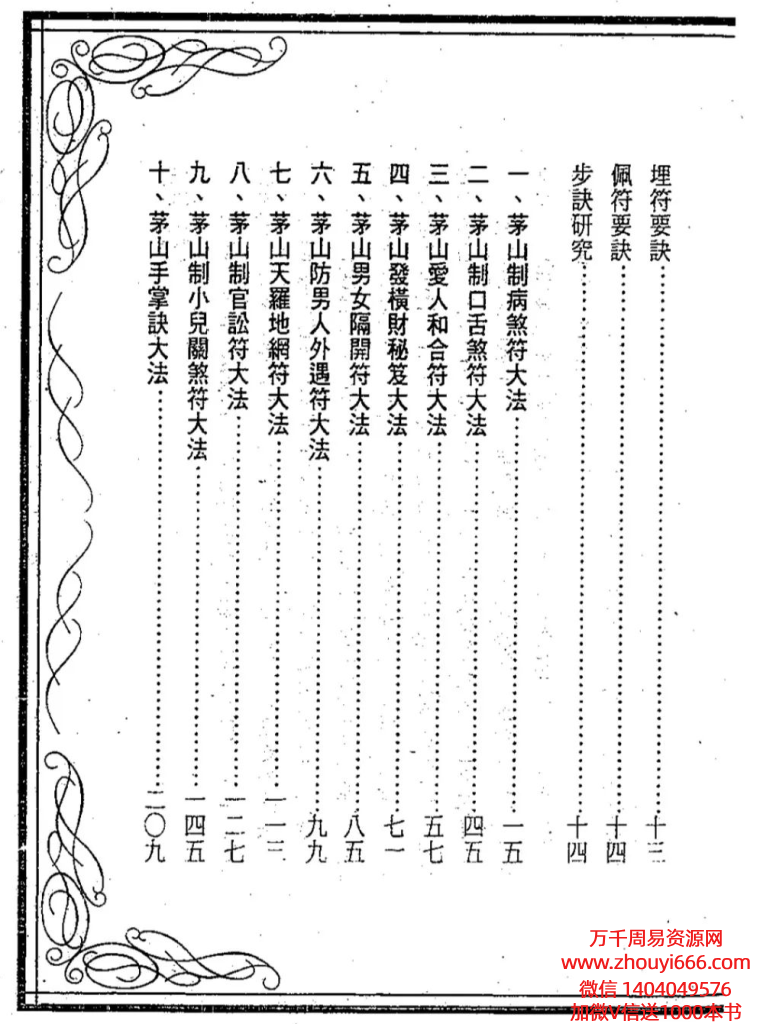 埋符要訣……十三
佩符要訣……十四
步訣研究……十四
一、茅山制病煞符大法……一五
二、茅山制口舌煞符大法……四五
三、茅山愛人和合符大法……五七
四、茅山發橫財秘笈大法……七一
五、茅山男女隔開符大法……八五
六、茅山防男人外遇符大法……九九
七、茅山天羅地網符大法……一一三
八、茅山制官訟符大法……一二七
九、茅山制小兒關煞符大法……一四五
十、茅山手掌訣大法……二〇九
万千周易资源网
www.zhouyi666.com
微信 1404049576
加微V信送1000本书